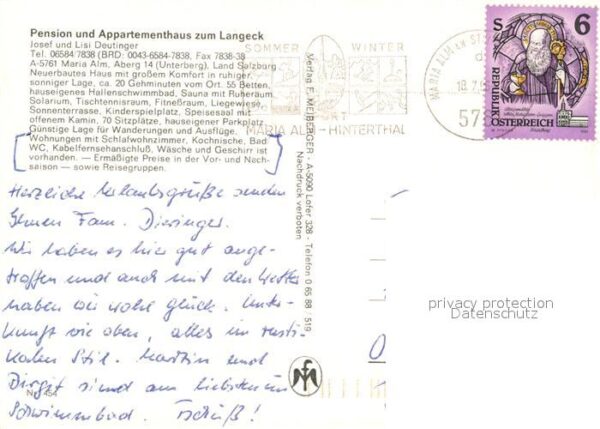 Pension und Appartementhaus zum Langeck
Josef und Lisi Deutinger
Tel. 06584/7838 (BRD: 0043-6584-7838, Fax 7838-38
A-5761 Maria Alm, Aberg 14 (Unterberg), Land Salzburg
Neuerbautes Haus mit großem Komfort in ruhiger,
sonniger Lage, ca. 20 Gehminuten vom Ort. 55 Betten,
hauseigenes Hallenschwimmbad, Sauna mit Ruheraum,
Solarium, Tischtennisraum, Fitneßraum, Liegewiese,
Sonnenterrasse, Kinderspielplatz, Speisesaal mit
offenem Kamin, 70 Sitzplätze, hauseigener Parkplatz.
Günstige Lage für Wanderungen und Ausflüge.
Wohnungen mit Schlafwohnzimmer, Kochnische, Bad
WC, Kabelfernsehanschluß, Wäsche und Geschirr ist
vorhanden. — Ermäßigte Preise in der Vor- und Nach-
saison — sowie Reisegruppen.
Herzliche Urlaubsgrüße senden
Ihnen Fam. Dieringer.
Wir haben es hier gut ange-
troffen und auch mit dem Wetter
haben wir wohl Glück. Unter-
kunft wie oben, alles im rusti-
kalen Stil. Martin und
Birgit sind am liebsten im
Schwimmbad. Tschüß!
SOMMER WINTER
MARIA ALM - HINTERTHAL
Verlag F. MEIBERGER - A-5090 Lofer 328 - Telefon 0 65 88 / 519
Nachdruck verboten
MARIA ALM
S 6
REPUBLIK
ÖSTERREICH
privacy protection
Datenschutz